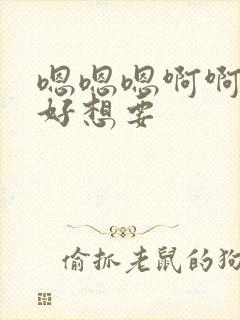 嗯嗯嗯啊啊
好想要
偷抓老鼠的狗